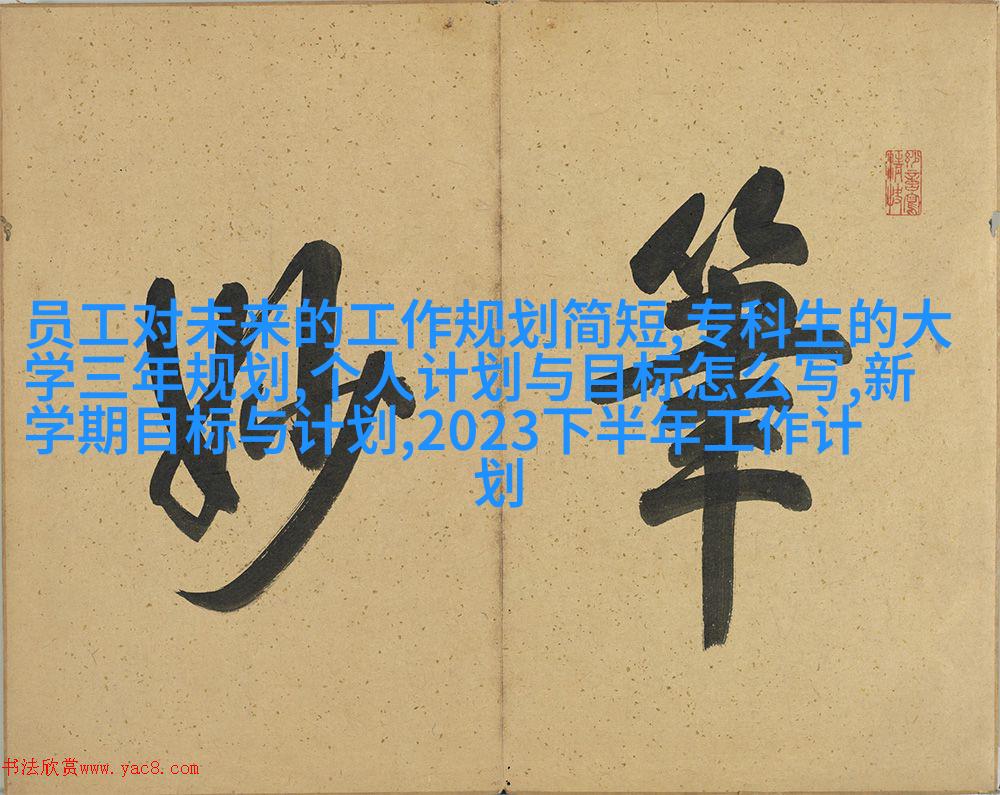 筆
妙
员工对未来的工作规划简短,专科生的大
学三年规划,个人计划与目标怎么写,新
学期目标与计划,2023下半年工作计
划
书法欣赏www.yac8.com